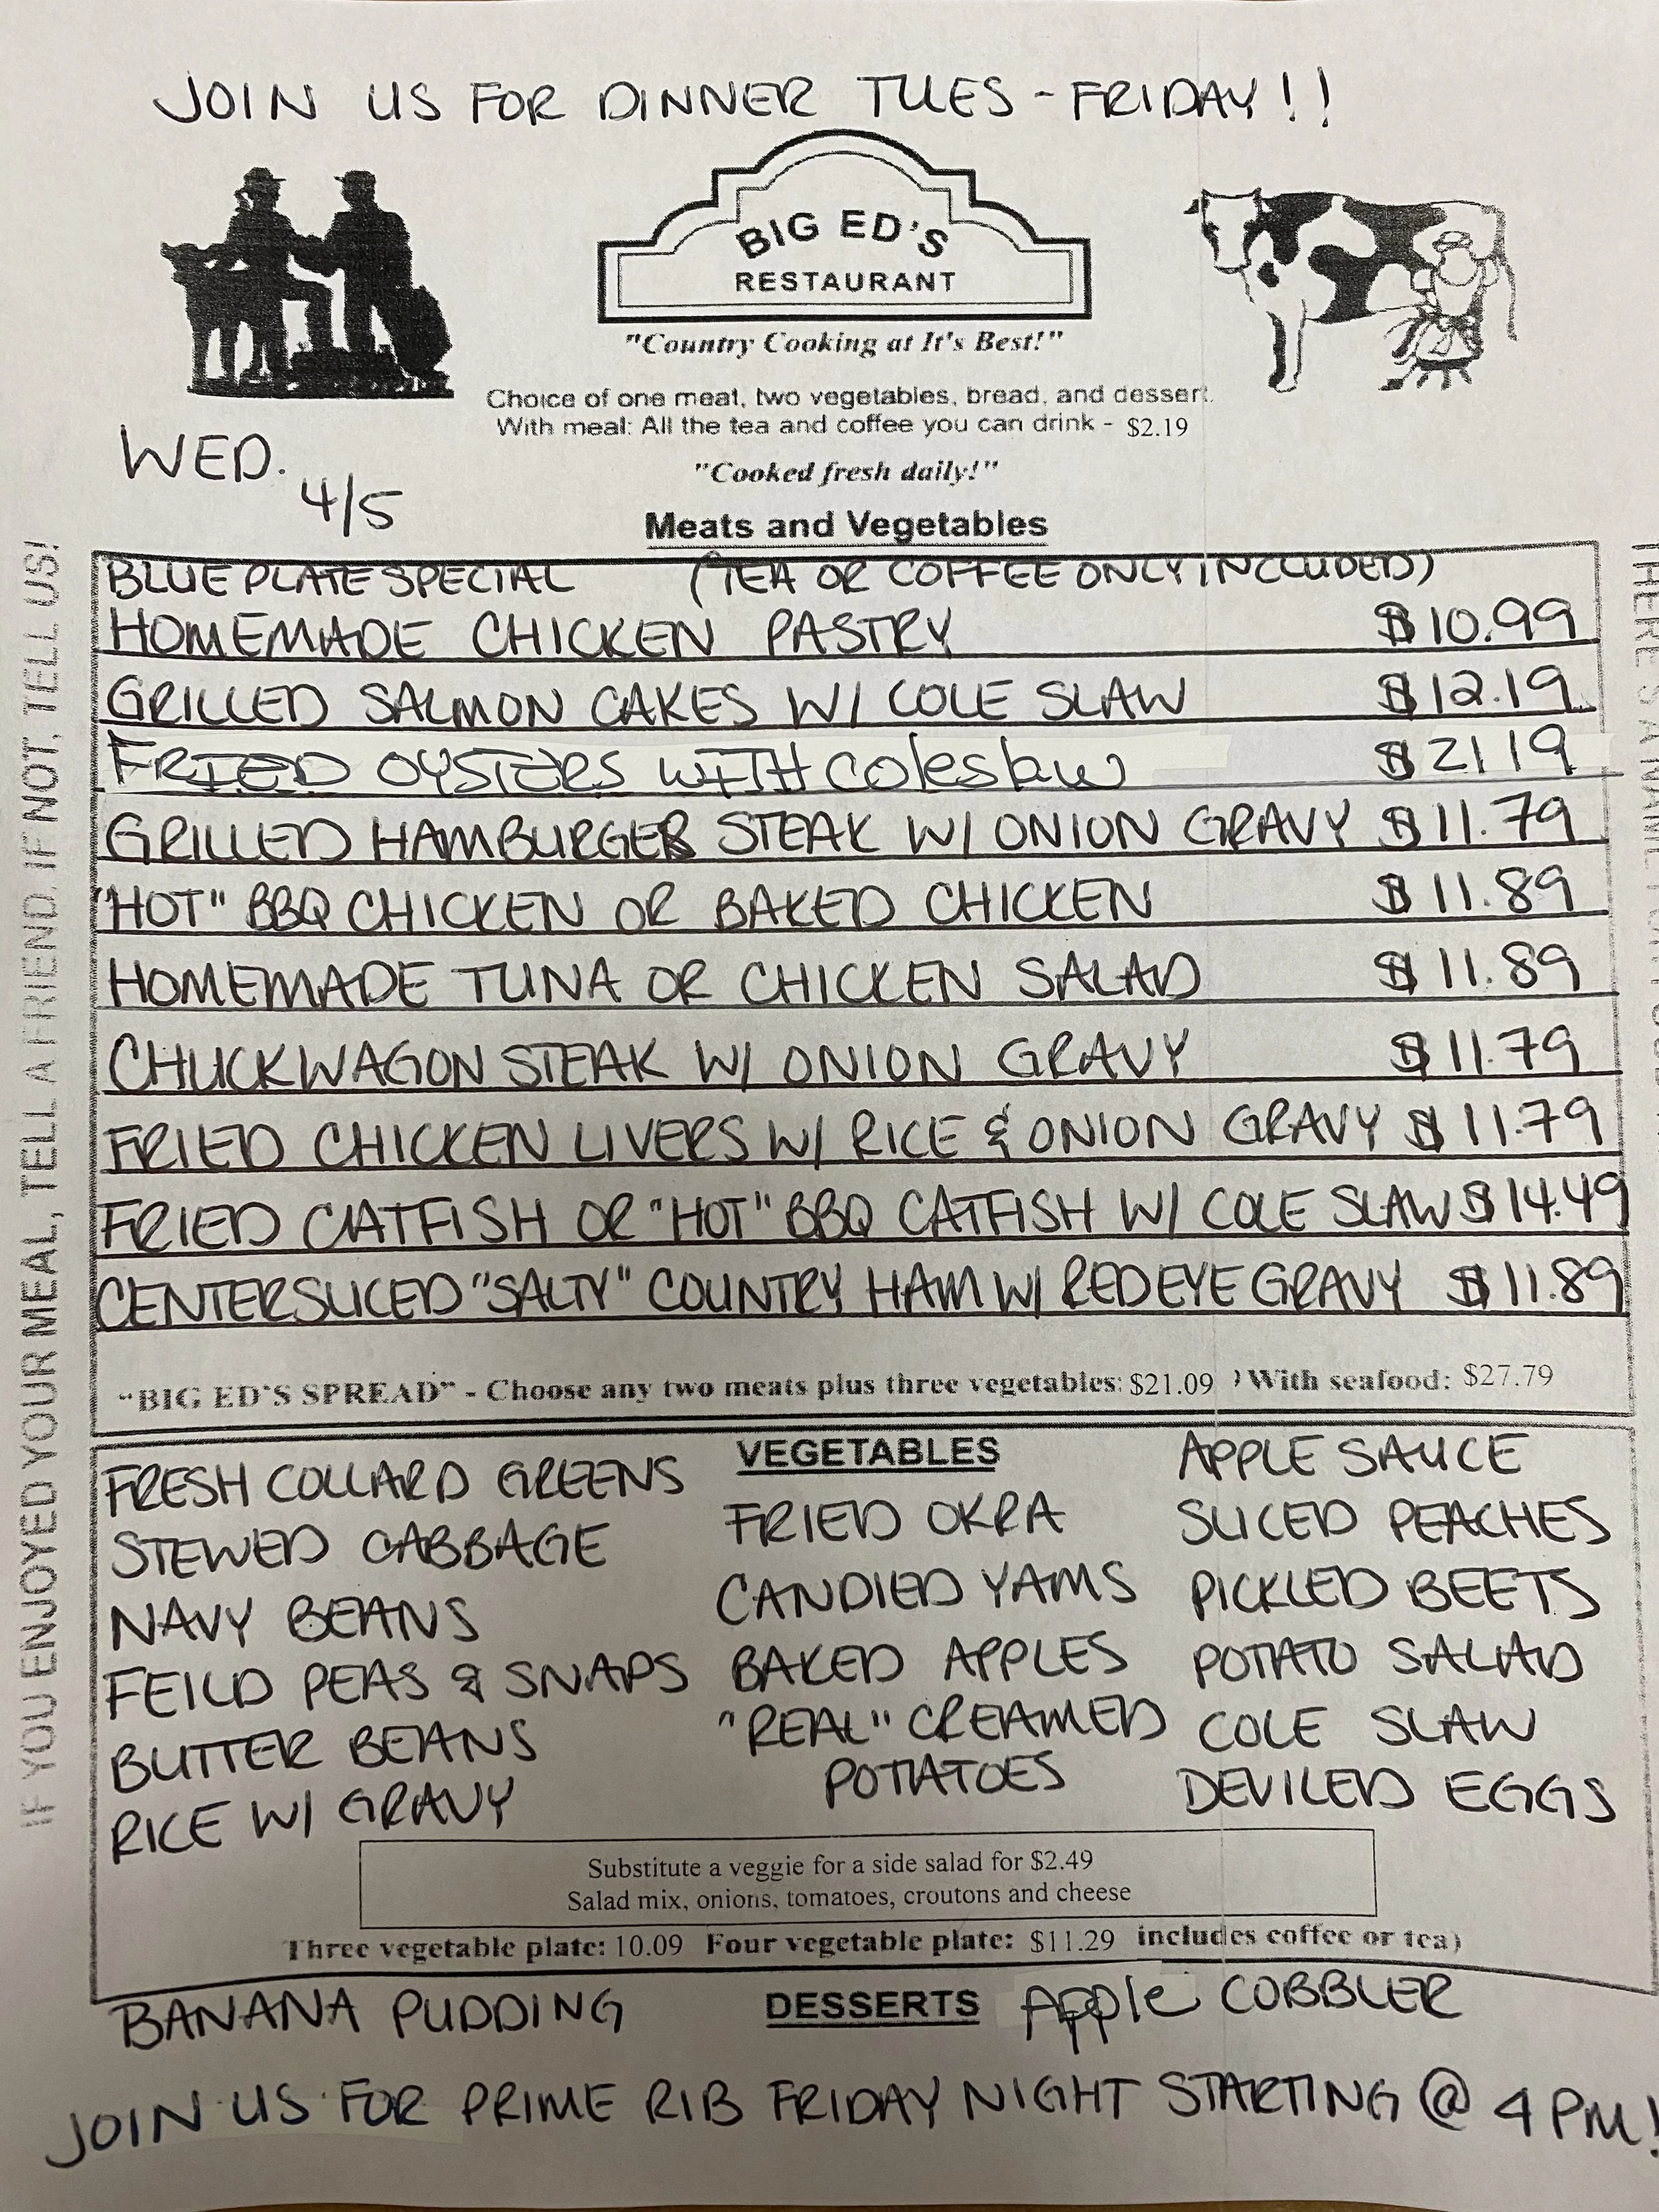 JOIN US FOR DINNER TUES - FRIDAY!!
BIG ED'S
RESTAURANT
"Country Cooking at It's Best!"
Choice of one meat, two vegetables, bread, and dessert.
With meal: All the tea and coffee you can drink - $2.19
WED.
4/5
"Cooked fresh daily!"
Meats and Vegetables
BLUE PLATE SPECIAL (TEA OR COFFEE ONLY INCLUDED)
HOMEMADE CHICKEN PASTRY $10.99
GRILLED SALMON CAKES W/ COLE SLAW $12.19
FRIED OYSTERS WITH Coleslaw $2119
GRILLED HAMBURGER STEAK W/ ONION GRAVY $11.79
"HOT" BBQ CHICKEN OR BAKED CHICKEN $11.89
HOMEMADE TUNA OR CHICKEN SALAD $11.89
CHUCKWAGON STEAK W/ ONION GRAVY $11.79
FRIED CHICKEN LIVERS W/ RICE & ONION GRAVY $11.79
FRIED CATFISH OR "HOT" BBQ CATFISH W/ COLE SLAW $14.49
CENTERSLICED "SALTY" COUNTRY HAM W/ REDEYE GRAVY $11.89
"BIG ED'S SPREAD" - Choose any two meats plus three vegetables: $21.09 ) With seafood: $27.79
VEGETABLES
FRESH COLLARD GREENS
STEWED CABBAGE
NAVY BEANS
FEILD PEAS & SNAPS
BUTTER BEANS
RICE W/ GRAVY
FRIED OKRA
CANDIED YAMS
BAKED APPLES
"REAL" CREAMED
POTATOES
APPLE SAUCE
SLICED PEACHES
PICKLED BEETS
POTATO SALAD
COLE SLAW
DEVILED EGGS
Substitute a veggie for a side salad for $2.49
Salad mix, onions, tomatoes, croutons and cheese
Three vegetable plate: 10.09 Four vegetable plate: $11.29 includes coffee or tea)
BANANA PUDDING DESSERTS Apple COBBLER
JOIN US FOR PRIME RIB FRIDAY NIGHT STARTING @ 4 PM!
IF YOU ENJOYED YOUR MEAL, TELL A FRIEND. IF NOT, TELL US!